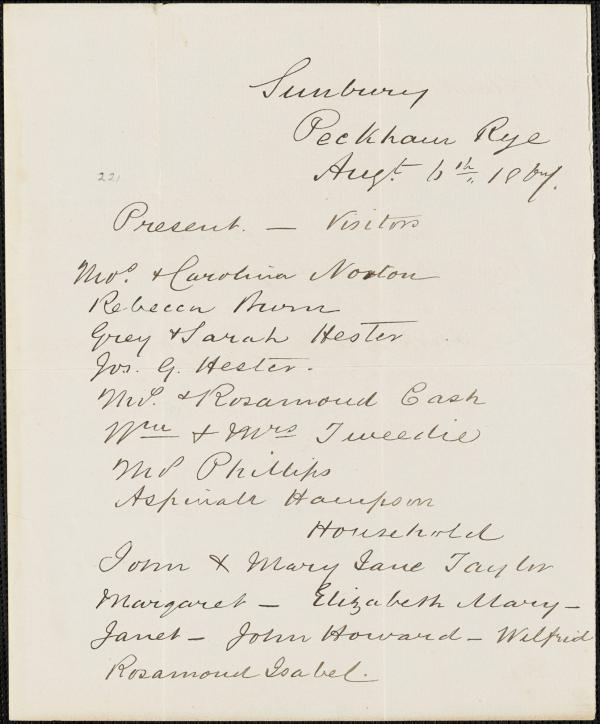 Sunbury
Peckham Rye
Augt. 6th 1867.
22,
Present. — Visitors
& Carolina Norton
Rebecca Burn
Grey & Sarah Hester
Jos. G. Hester.
& Rosamond Cash
Wm & Mrs Tweedie
Phillips
Aspinall Hampson
Household
John & Mary Jane Taylor
Margaret — Elizabeth Mary —
Janet — John Howard — Wilfrid
Rosamond Isabel.